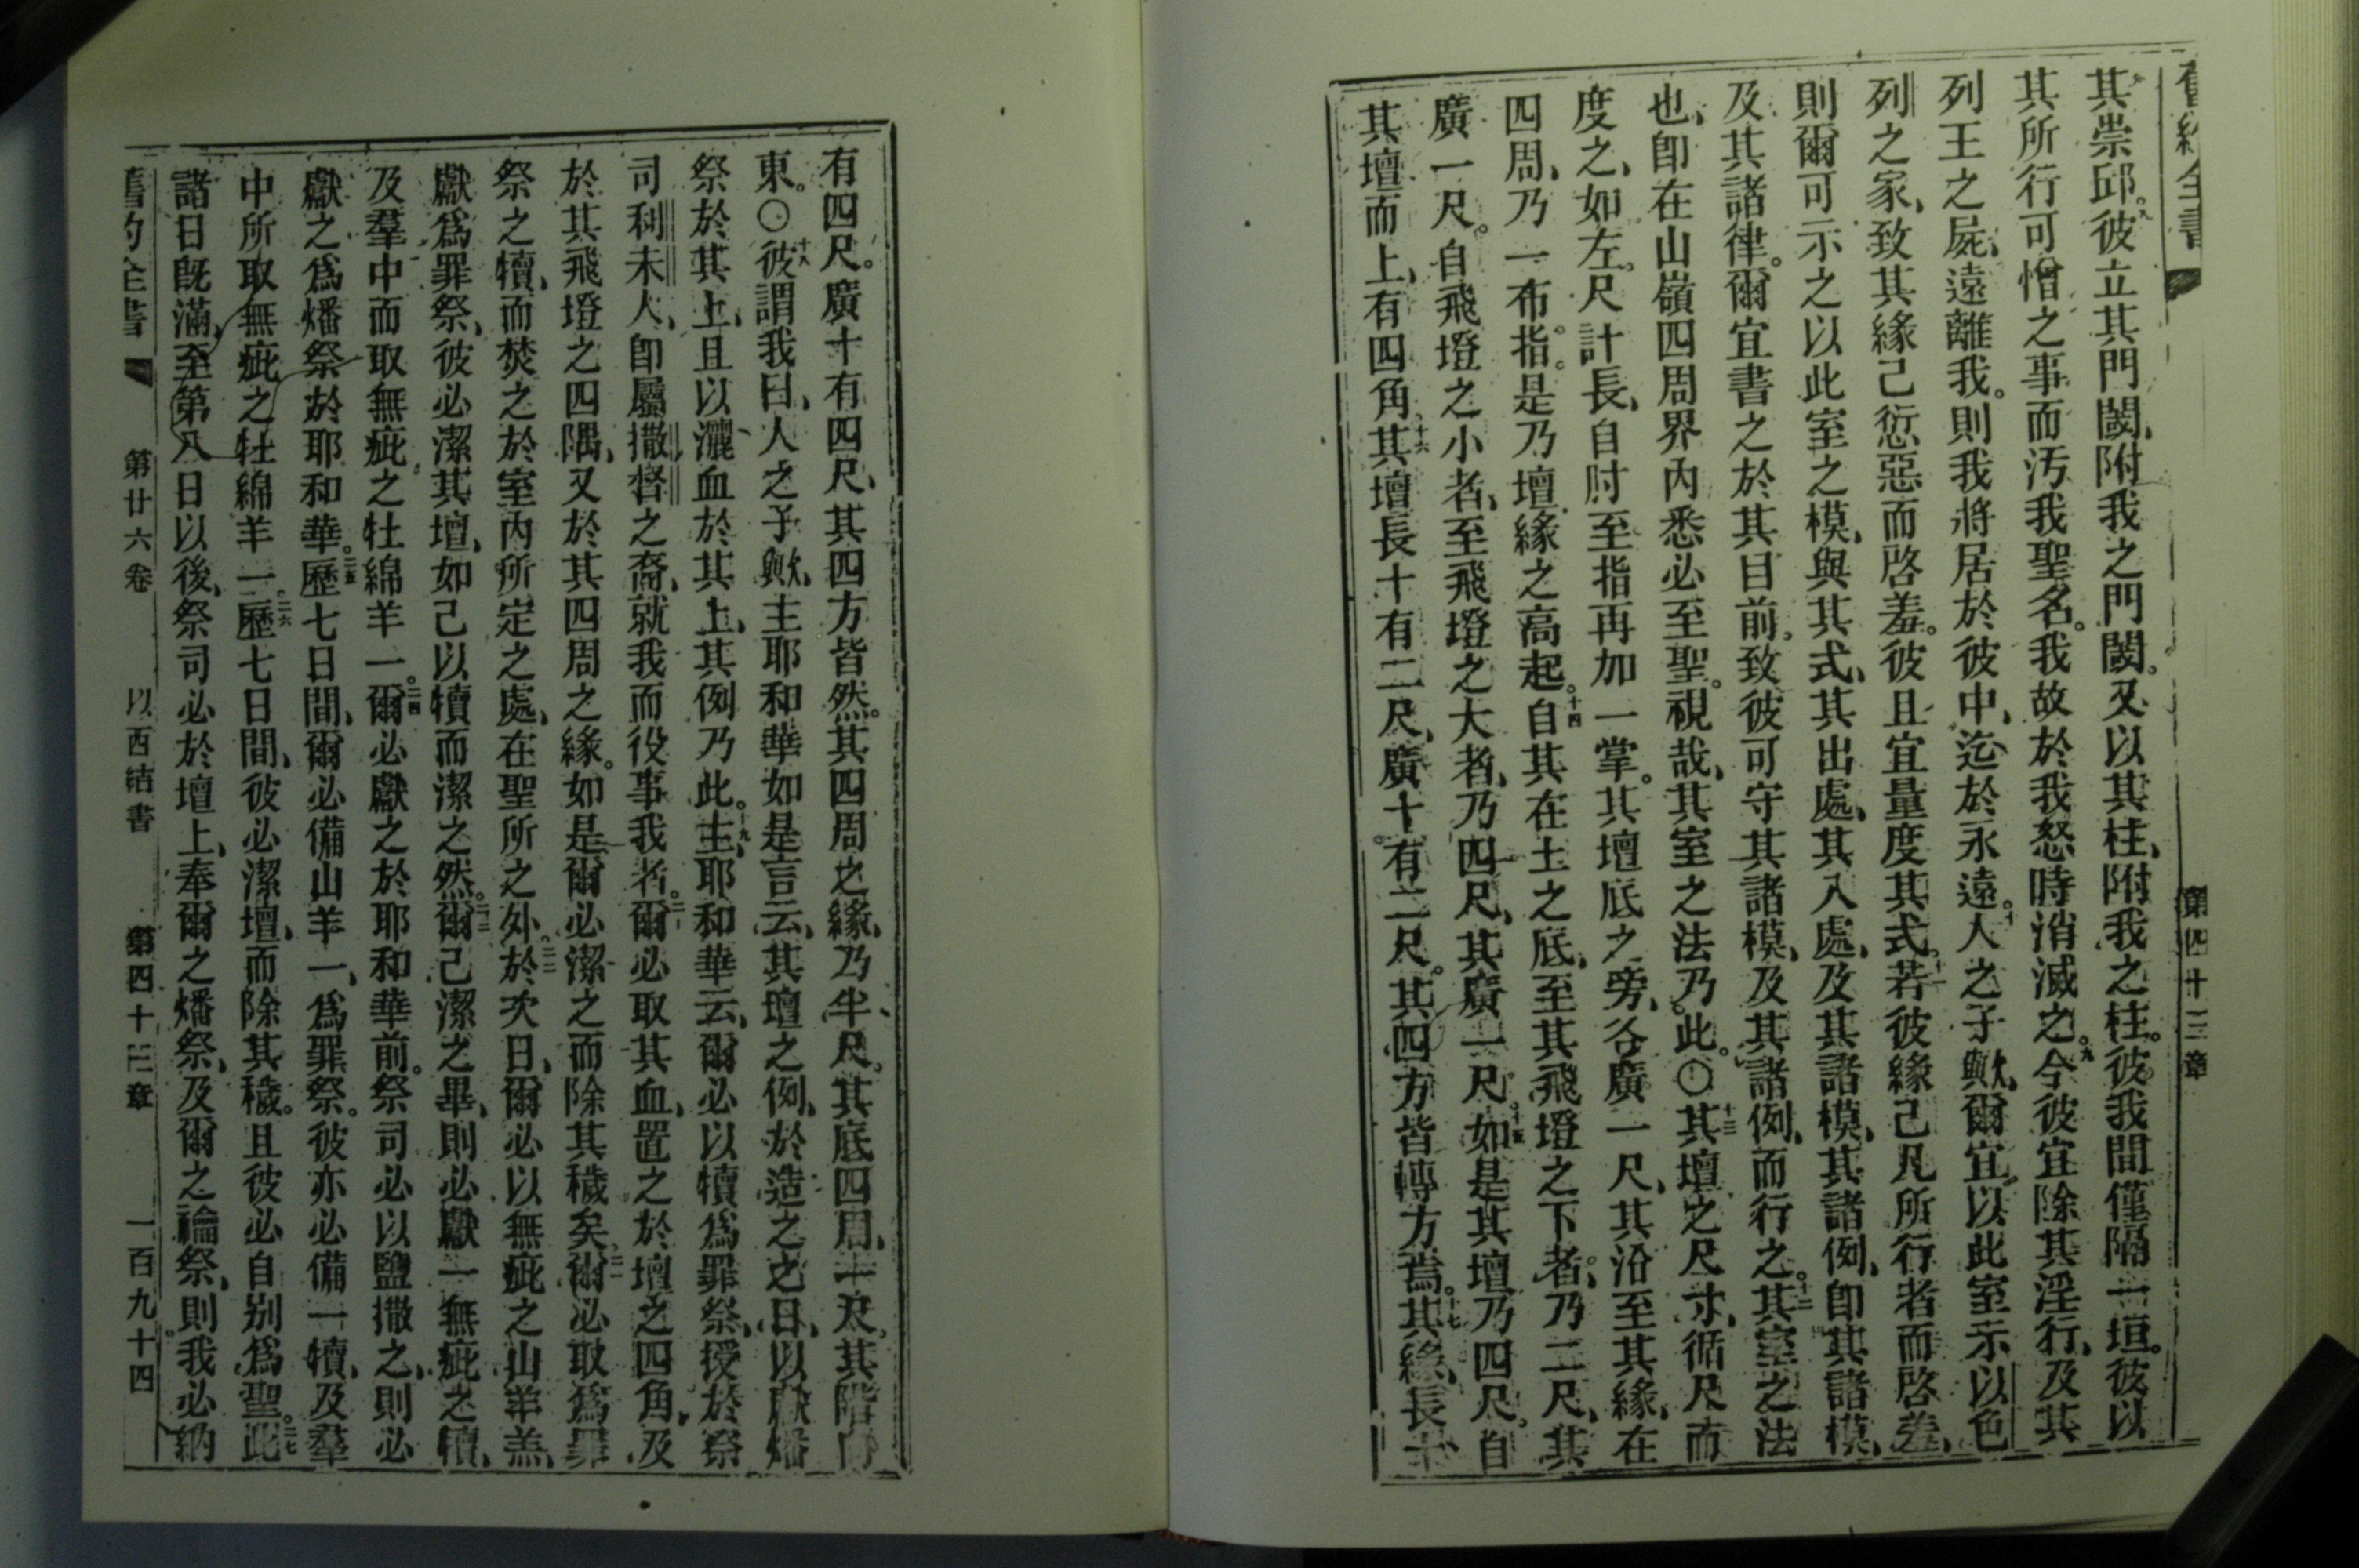 舊約全書 第四十三章
其崇邱。九彼立其門閾、附我之門閾。又以其柱、附我之柱。彼我間僅隔一垣。彼以
其所行可憎之事而汚我聖名。我故於我怒時消滅之。九今彼宜除其淫行、及其
列王之屍、遠離我。則我將居於彼中、迄於永遠。十人之子歟、爾宜以此室示以色
列之家、致其緣己愆惡而啓羞。彼且宜量度其式。十一若彼緣己凡所行者而啓羞、
則爾可示之以此室之模、與其式、其出處、其入處、及其諸模、其諸例、卽其諸模、
及其諸律。爾宜書之於其目前、致彼可守其諸模、及其諸例、而行之。十二其室之法
也、卽在山嶺四周界內悉必至聖。視哉、其室之法乃此。〇十三其壇之尺寸、循尺而
度之、如左。尺計長、自肘至指再加一掌。其壇底之旁、各廣一尺、其沿至其緣、在
四周、乃一布指。是乃壇緣之高起。十四自其在土之底、至其飛墱之下者、乃二尺、其
廣一尺。自飛墱之小者、至飛墱之大者、乃四尺、其廣一尺。十五如是其壇乃四尺。自
其壇而上、有四角。十六其壇長十有二尺、廣十有二尺。其四方皆轉方焉。十七其緣、長十
有四尺。廣十有四尺、其四方皆然。其四周之緣、乃半尺。其底四周、一尺。其階向
東。〇十八彼謂我曰、人之子歟、主耶和華如是言云、其壇之例、於造之之日、以獻燔
祭於其上、且以灑血於其上、其例乃此。十九主耶和華云、爾必以犢爲罪祭、授於祭
司利未人、卽屬撒督之裔、就我而役事我者。二十爾必取其血、置之於壇之四角、及
於其飛墱之四隅、又於其四周之緣。如是爾必潔之而除其穢矣。二一爾必取爲罪
祭之犢、而焚之於室內所定之處、在聖所之外。二二於次日、爾必以無疵之山羊羔、
獻爲罪祭、彼必潔其壇、如己以犢而潔之然。二三爾己潔之畢、則必獻一無疵之犢、
及羣中而取無疵之牡綿羊一。二四爾必獻之於耶和華前。祭司必以鹽撒之、則必
獻之爲燔祭於耶和華。二五歷七日間、爾必備山羊一、爲罪祭。彼亦必備一犢、及羣
中所取無疵之牡綿羊一。二六歷七日間、彼必潔壇、而除其穢。且彼必自別爲聖。二七此
諸日旣滿、至第八日以後、祭司必於壇上、奉爾之燔祭、及爾之禴祭、則我必納
舊約全書 第廿六卷 以西結書 第四十三章 一百九十四